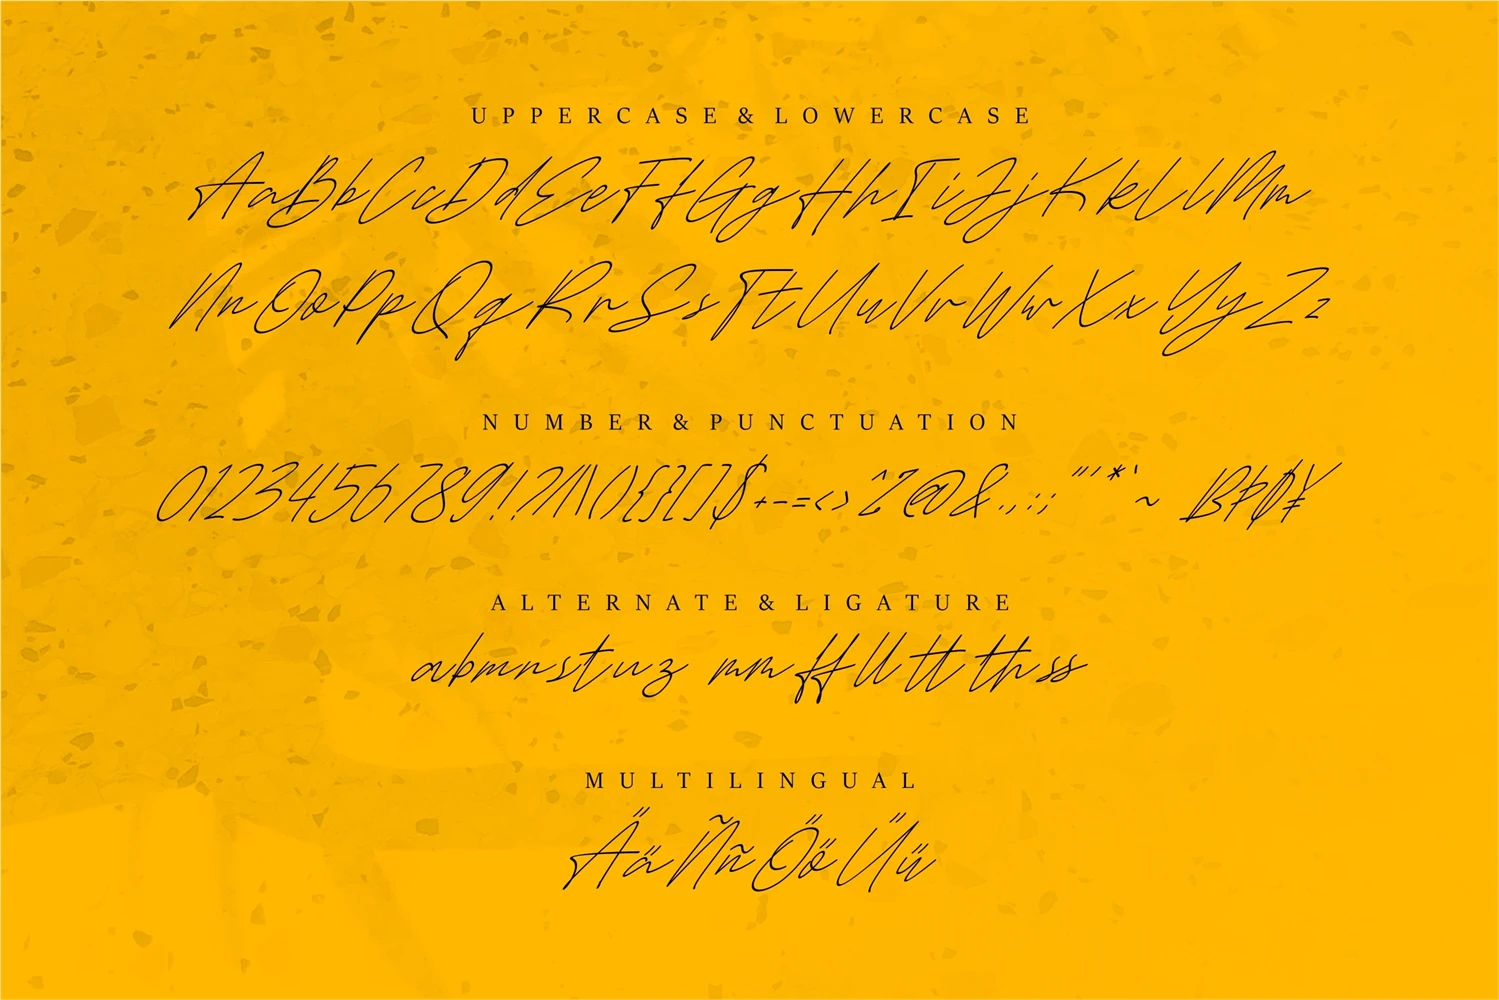 UPPERCASE & LOWERCASE
AaBbCcDdEeFfGgHhIiJjKkLlMm
NnOoPpQqRrSsTtUuVvWwXxYyZz
NUMBER & PUNCTUATION
0123456789!?/|\(){}[]$+-=<>^%@&.,:;"'*`~ ₿
ALTERNATE & LIGATURE
abmnrstuz mm ff ll tt th ss
MULTILINGUAL
ÄäÑñÖöÜü